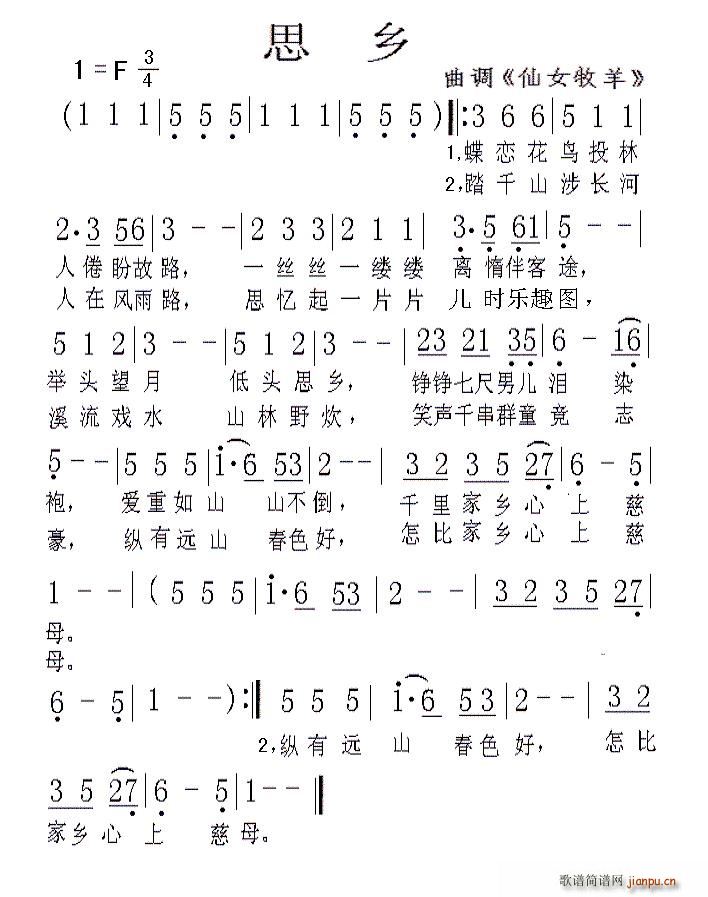 思 乡
1 = F 3/4
曲调《仙女牧羊》
(1 1 1 | 5 5 5 | 1 1 1 | 5 5 5 ) ‖: 3 6 6 | 5 1 1 |
1,蝶 恋 花 鸟 投 林
2,踏 千 山 涉 长 河
2· 3 56 | 3 - - | 2 3 3 | 2 1 1 | 3· 5 61 | 5 - - |
人 倦 盼 故 路， 一 丝 丝 一 缕 缕 离 惰 伴 客 途，
人 在 风 雨 路， 思 忆 起 一 片 片 儿 时 乐 趣 图，
5 1 2 | 3 - - | 5 1 2 | 3 - - | 23 21 35 | 6 - 16 |
举 头 望 月 低 头 思 乡， 铮铮七尺男儿 泪 染
溪 流 戏 水 山 林 野 炊， 笑声千串群童 竞 志
5 - - | 5 5 5 | i· 6 53 | 2 - - | 3 2 3 5 27 | 6 - 5 |
袍， 爱 重 如 山 山 不 倒， 千 里 家 乡 心 上 慈
豪， 纵 有 远 山 春 色 好， 怎 比 家 乡 心 上 慈
1 - - | ( 5 5 5 | i· 6 53 | 2 - - | 3 2 3 5 27 |
母。
母。
6 - 5 | 1 - - ) :‖ 5 5 5 | i· 6 53 | 2 - - | 3 2
2,纵 有 远 山 春 色 好， 怎 比
3 5 27 | 6 - 5 | 1 - - ‖
家 乡 心 上 慈 母。
歌谱简谱网
jianpu.cn